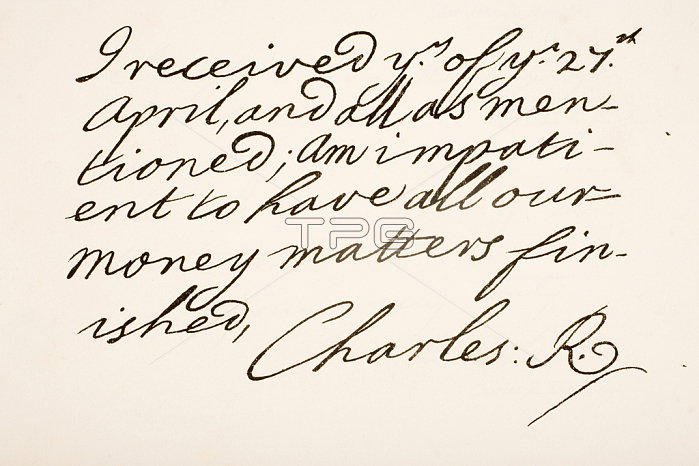 I received y.rs of y.e 27.th
April, and all as men-
tioned; Am impati-
ent to have all our
money matters fin-
ished,
Charles: R.
TPG